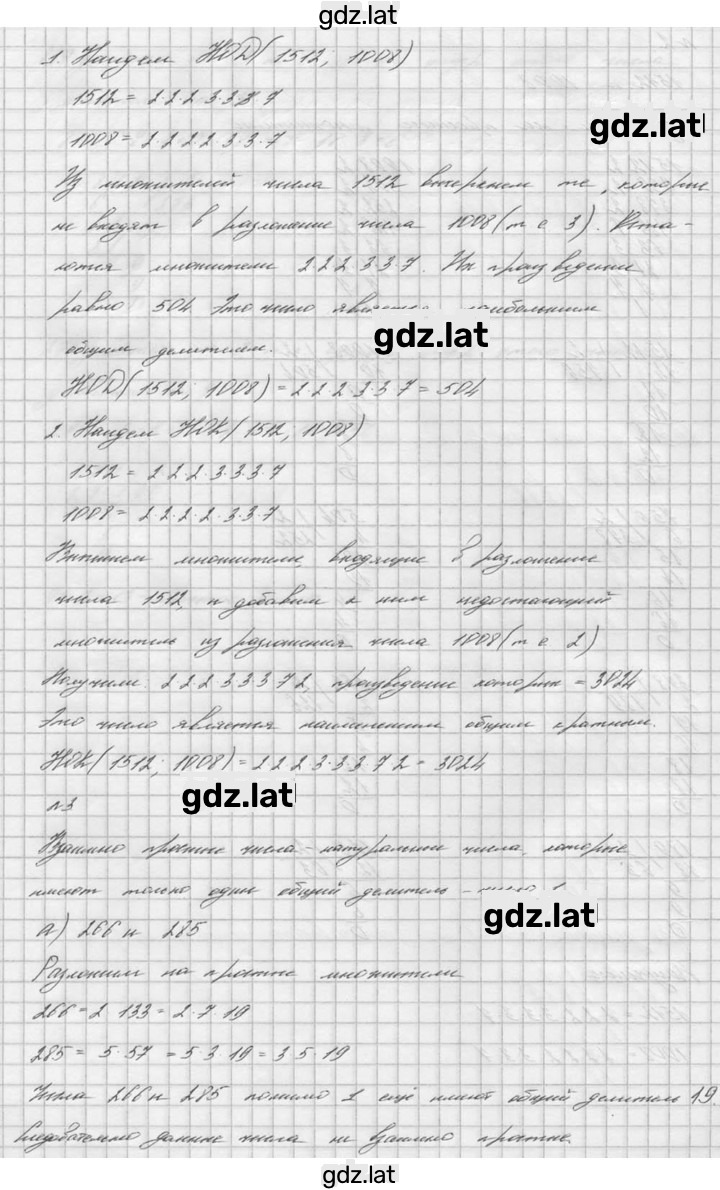 gdz.lat
1. Найдем НОД(1512; 1008)
1512 = 2·2·2·3·3·3·7
gdz.lat
1008 = 2·2·2·2·3·3·7
Из множителей числа 1512 вычеркнем те, которые
не входят в разложение числа 1008 (т е 3). Оста-
ются множители 2·2·2·3·3·7. Их произведение
равно 504. Это число является наибольшим
gdz.lat
общим делителем.
НОД(1512; 1008) = 2·2·2·3·3·7 = 504
2. Найдем НОК(1512; 1008)
1512 = 2·2·2·3·3·3·7
1008 = 2·2·2·2·3·3·7
Выпишем множители, входящие в разложение
числа 1512, и добавим к ним недостающий
множитель из разложения числа 1008 (т е 2)
Получили: 2 2 2 3 3 3 7 2, произведение которых = 3024
Это число является наименьшим общим кратным.
НОК(1512; 1008) = 2·2·2·3·3·3·7·2 = 3024
gdz.lat
№3
Взаимно простые числа - натуральные числа, которые
имеют только один общий делитель -
gdz.lat
а) 266 и 285
Разложим на простые множители
266 = 2·133 = 2·7·19
285 = 5·57 = 5·3·19 = 3·5·19
Числа 266 и 285 помимо 1 ещё имеют общий делитель 19.
Следовательно данные числа не взаимно простые.
gdz.lat